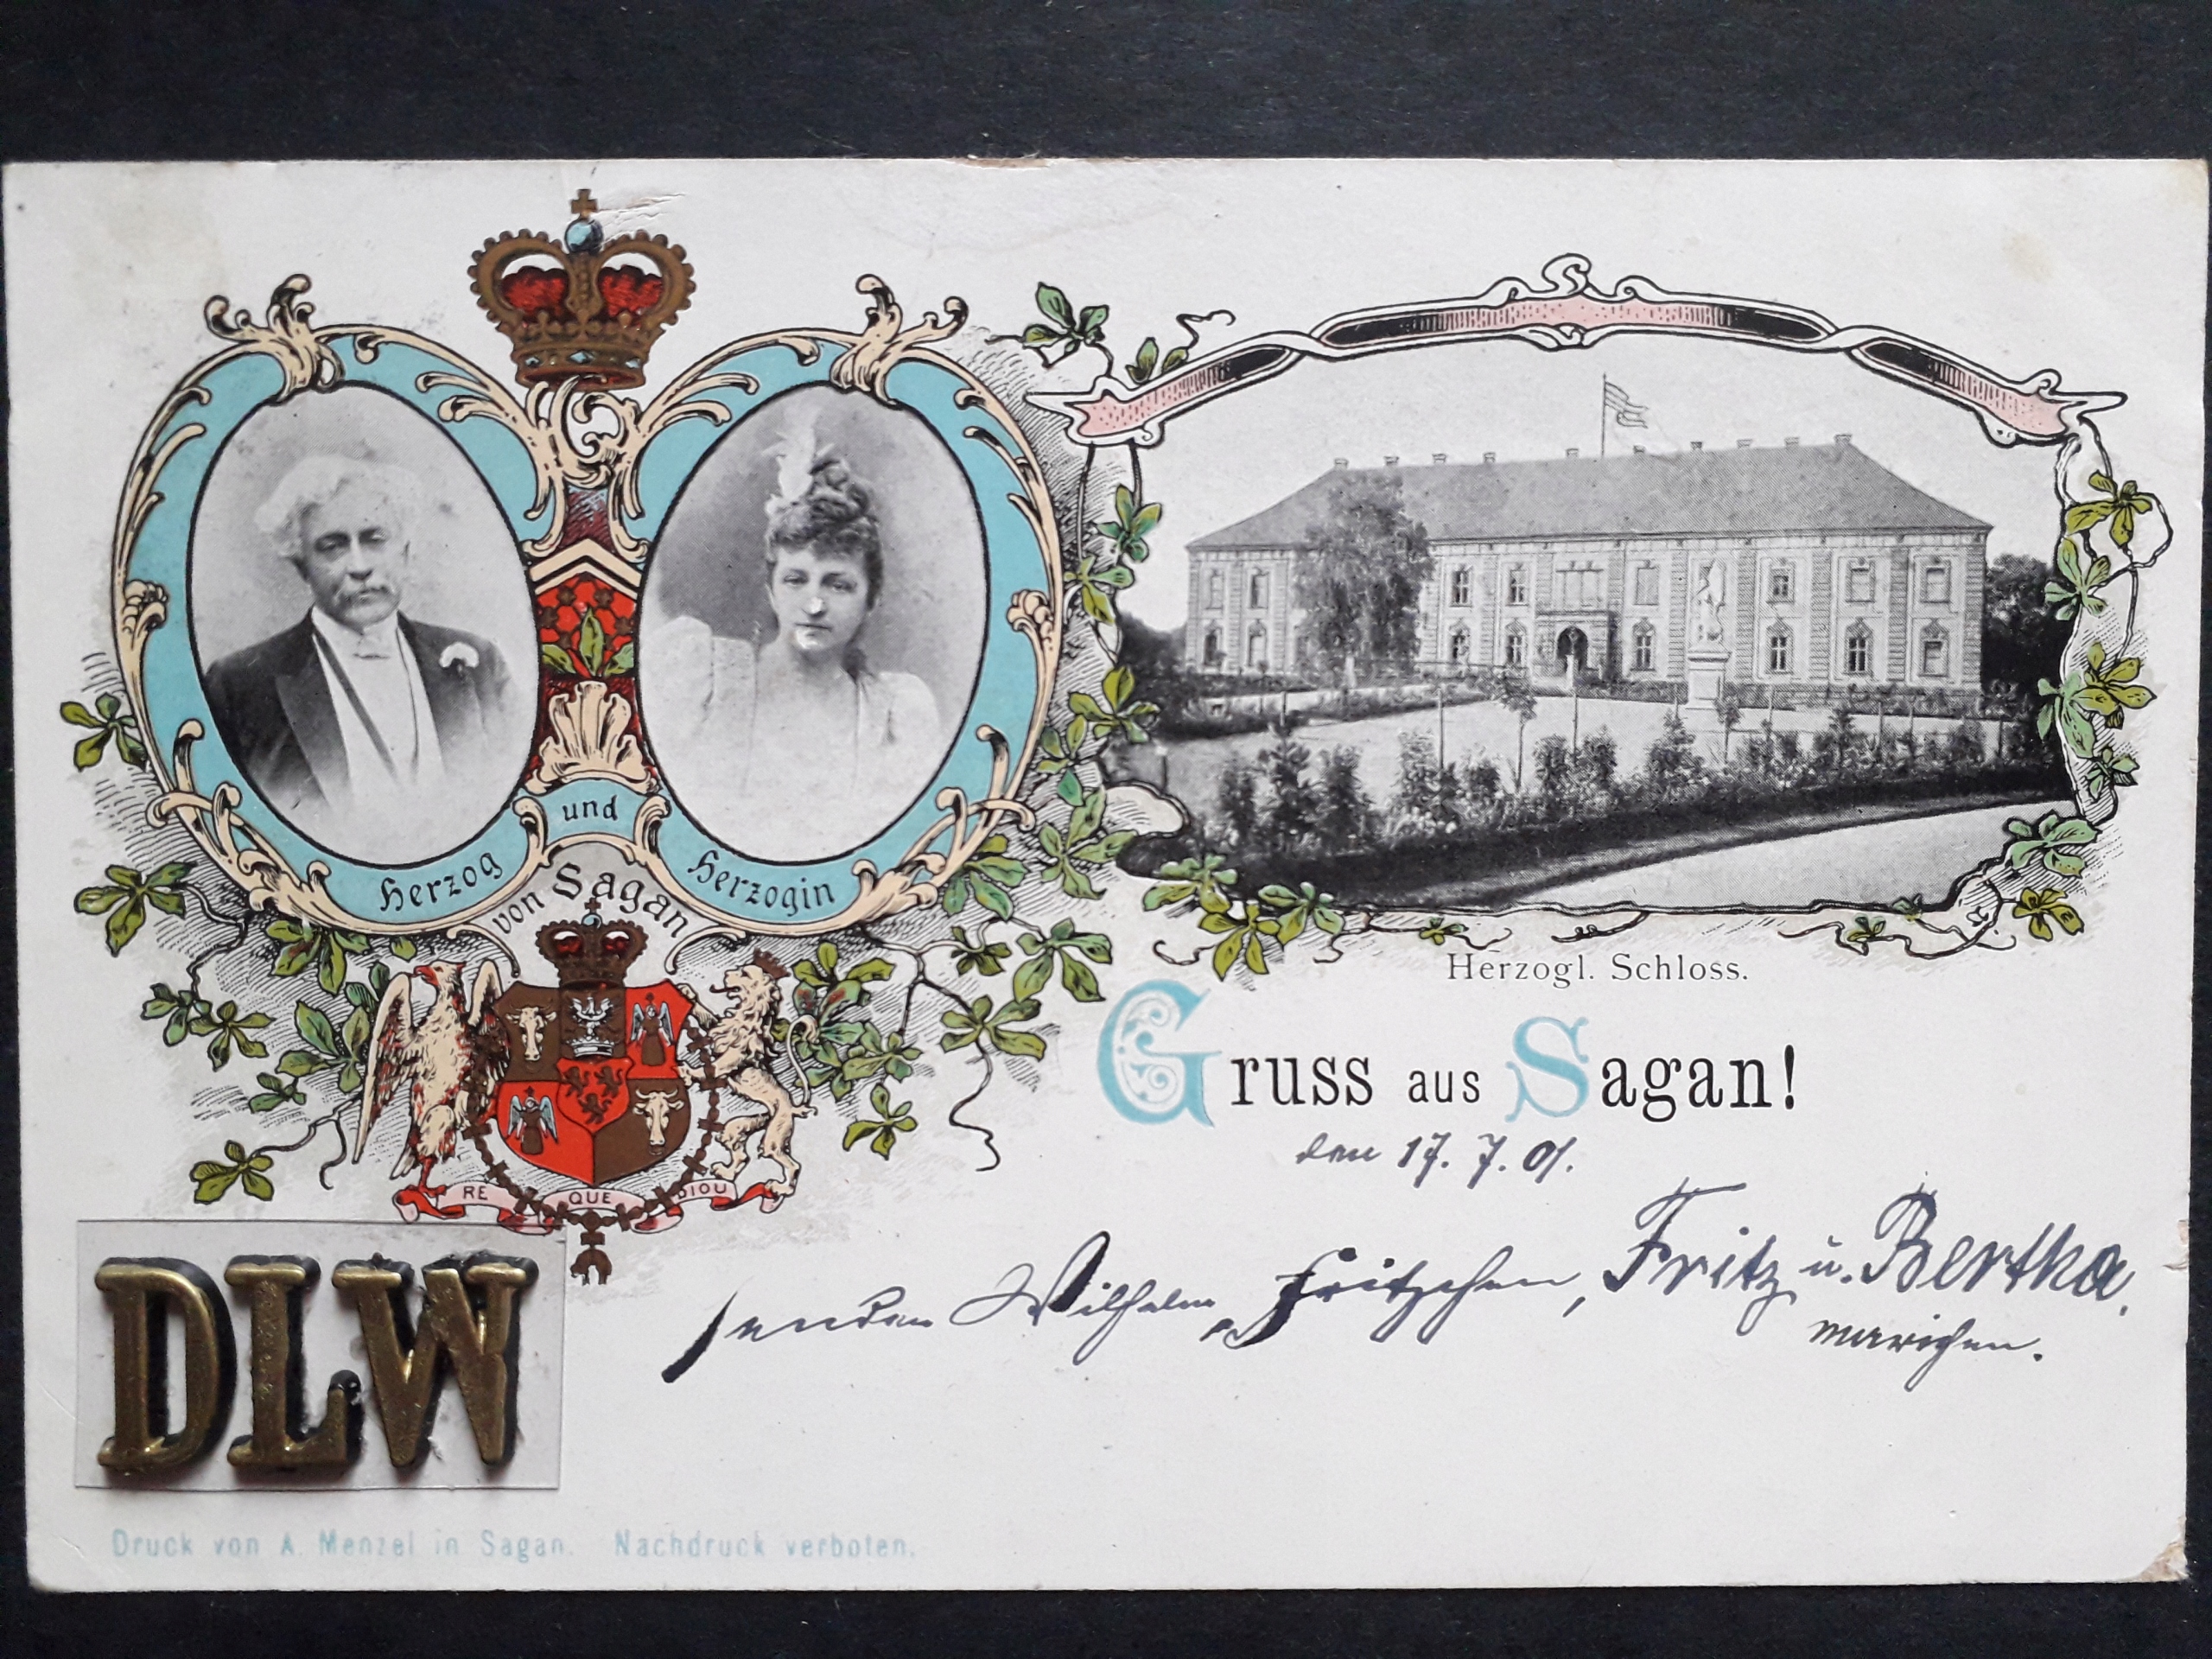 Herzog und Herzogin
von Sagan
RE QUE DIOU
Herzogl. Schloss.
Gruss aus Sagan!
den 17. 7. 01.
senden Wilhelm, Fritzchen, Fritz u. Bertha,
Mariechen.
DLW
Druck von A. Menzel in Sagan. Nachdruck verboten.